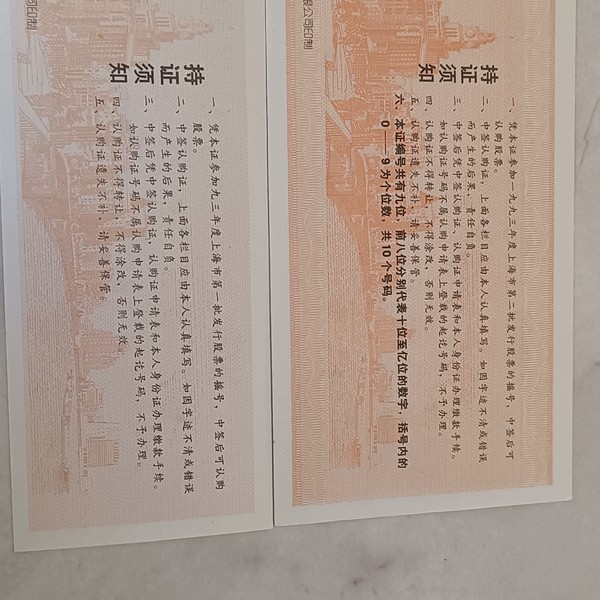 限公司印制
持证须知
一、凭本证参加一九九三年度上海市第二批发行股票的摇号，中签后可
认购股票。
二、中签认购证，上面各栏目应由本人认真填写。如因字迹不清或错误
而产生的后果，责任自负。
三、中签后凭中签认购证、认购证申请表和本人身份证办理缴款手续。
如认购证号码不属认购申请表上登载的起讫号码，不予办理。
四、认购证不得转让，不得涂改，否则无效。
五、认购证遗失不补，请妥善保管。
六、本证编号共有九位，前八位分别代表十位至亿位的数字，括号内的
0——9为个位数，共10个号码。
公司印制
持证须知
一、凭本证参加一九九三年度上海市第一批发行股票的摇号，中签后可认购
股票。
二、中签认购证，上面各栏目应由本人认真填写。如因字迹不清或错误
而产生的后果，责任自负。
三、中签后凭中签认购证、认购证申请表和本人身份证办理缴款手续。
如认购证号码不属认购申请表上登载的起讫号码，不予办理。
四、认购证不得转让，不得涂改，否则无效。
五、认购证遗失不补，请妥善保管。